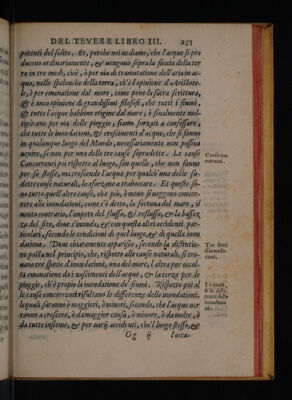 DEL TEVERE LIBRO III. 235
potenti del solito. Et, perche noi uediamo, che l'acque si pro
ducono ordinariamente, & uengono sopra la faccia della ter
ra in tre modi, cioè, ò per uia di tramutatione dell'aria in ac
qua, nelle spelonche della terra, ch'è l'opinione d'Aristote-
le, ò per emanatione dal mare, come pone la sacra scrittura,
& è anco opinione di grandissimi filosofi, che tutti i fiumi,
& tutte l'acque habbino origine dal mare; ò finalmente mol-
tiplicano per uia delle pioggie, siamo forzati à confessare,
che tutte le inondationi, & crescimenti d'acque, che si fanno
in qualunque luogo del Mondo, necessariamente non possino
uenire, se non per una delle tre cause sopradette. Le cause
Concorrenti poi rispetto al luogo, son quelle, che non fanno
per se stesse, ma crescendo l'acque per qualcuna delle su-
dette cause naturali, la sforzano a traboccare. Et queste so-
no tutte quell'altre cause, che più, ò meno si ueggono concor-
rere alle inondationi, come è'l detto, la fortuna del mare, il
uento contrario, l'impeto del flusso, & reflusso, & la bassez
za del sito, doue s'inonda, & con questa altri accidenti par-
ticolari, secondo le conditioni di quel luogo, & di quella inon
datione. Doue chiaramente apparisce, secondo la distintio-
ne posta nel principio, che, rispetto alle cause naturali, si tro-
uano tre spetie d'inondationi, una del mare, l'altra per occol
ta emanatione da i nascimenti dell'acque, & la terza per le
pioggie, ch'è propio la inondatione de' fiumi. Rispetto poi al
le cause concorrenti risultano le differenze delle inondationi,
lequali saranno ò maggiori, ò minori, secondo, che l'acque uer
ranno a crescere, ò da maggior causa, ò minore, ò da molte, ò
da tutte insieme, & per uarij accidenti, che'l luogo stesso, &
Gg ij
Cause con
correnti.
Tre sorti
d'inonda-
tioni.